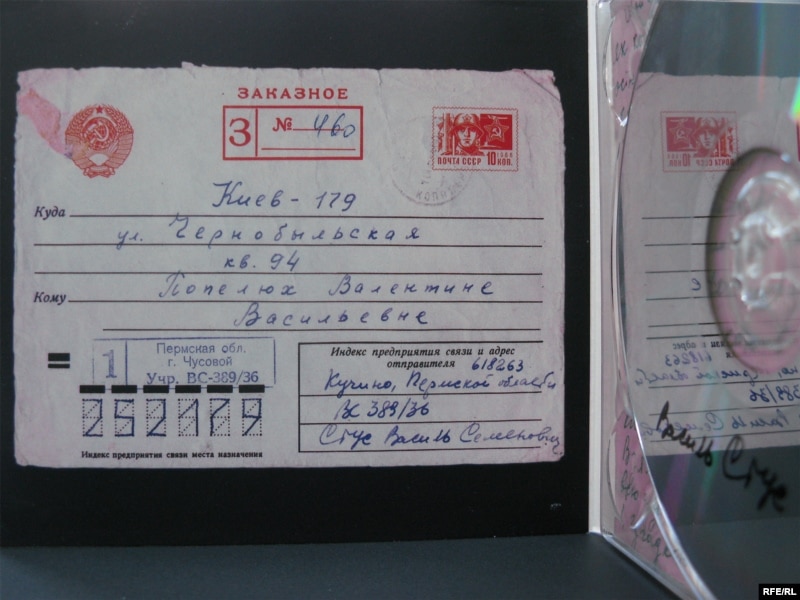 ЗАКАЗНОЕ
З № 460
ПОЧТА СССР 10 КОП.
Киев - 179
Куда
ул. Чернобыльская
кв. 94
Кому Попелюх Валентине
Васильевне
1 Пермская обл.
г. Чусовой
Учр. ВС-389/36
252179
Индекс предприятия связи места назначения
Индекс предприятия связи и адрес
отправителя 618263
Кучино, Пермской области
ВС 389/36
Стус Василь Семенович
Василь Стус
RFE/RL